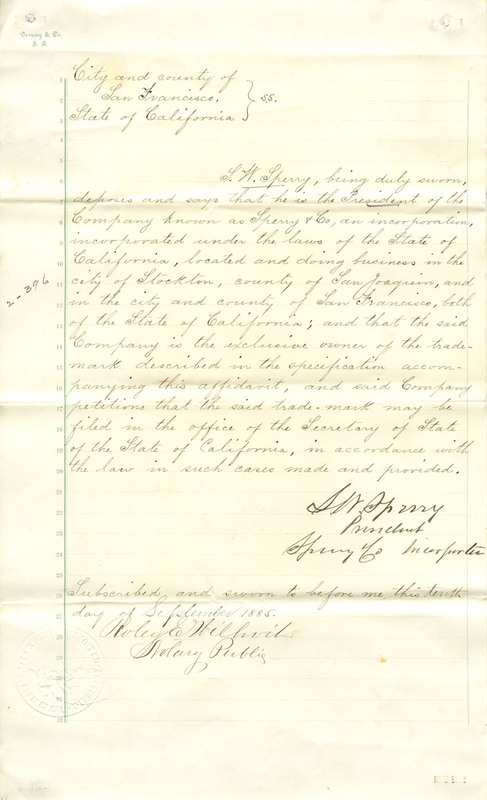 Dewey & Co.
S. A.
City and county of
San Francisco,
State of California } ss.
S. W. Sperry, being duly sworn,
deposes and says that he is the President of the
Company known as Sperry & Co, an incorporation,
incorporated under the laws of the State of
California, located and doing business in the
city of Stockton, county of San Joaquin, and
in the city and county of San Francisco, both
of the State of California; and that the said
Company is the exclusive owner of the trade-
mark described in the specification accom-
panying this affidavit, and said Company
petitions that the said trade-mark may be
filed in the office of the Secretary of State
of the State of California, in accordance with
the law in such cases made and provided.
S. W. Sperry
President
Sperry & Co Incorporated
Subscribed and sworn to before me this tenth
day of September 1885.
Notary Public
2-396
1
2
3
4
5
6
7
8
9
10
11
12
13
14
15
16
17
18
19
20
21
22
23
24
25
26
27
28
29
30
31
32